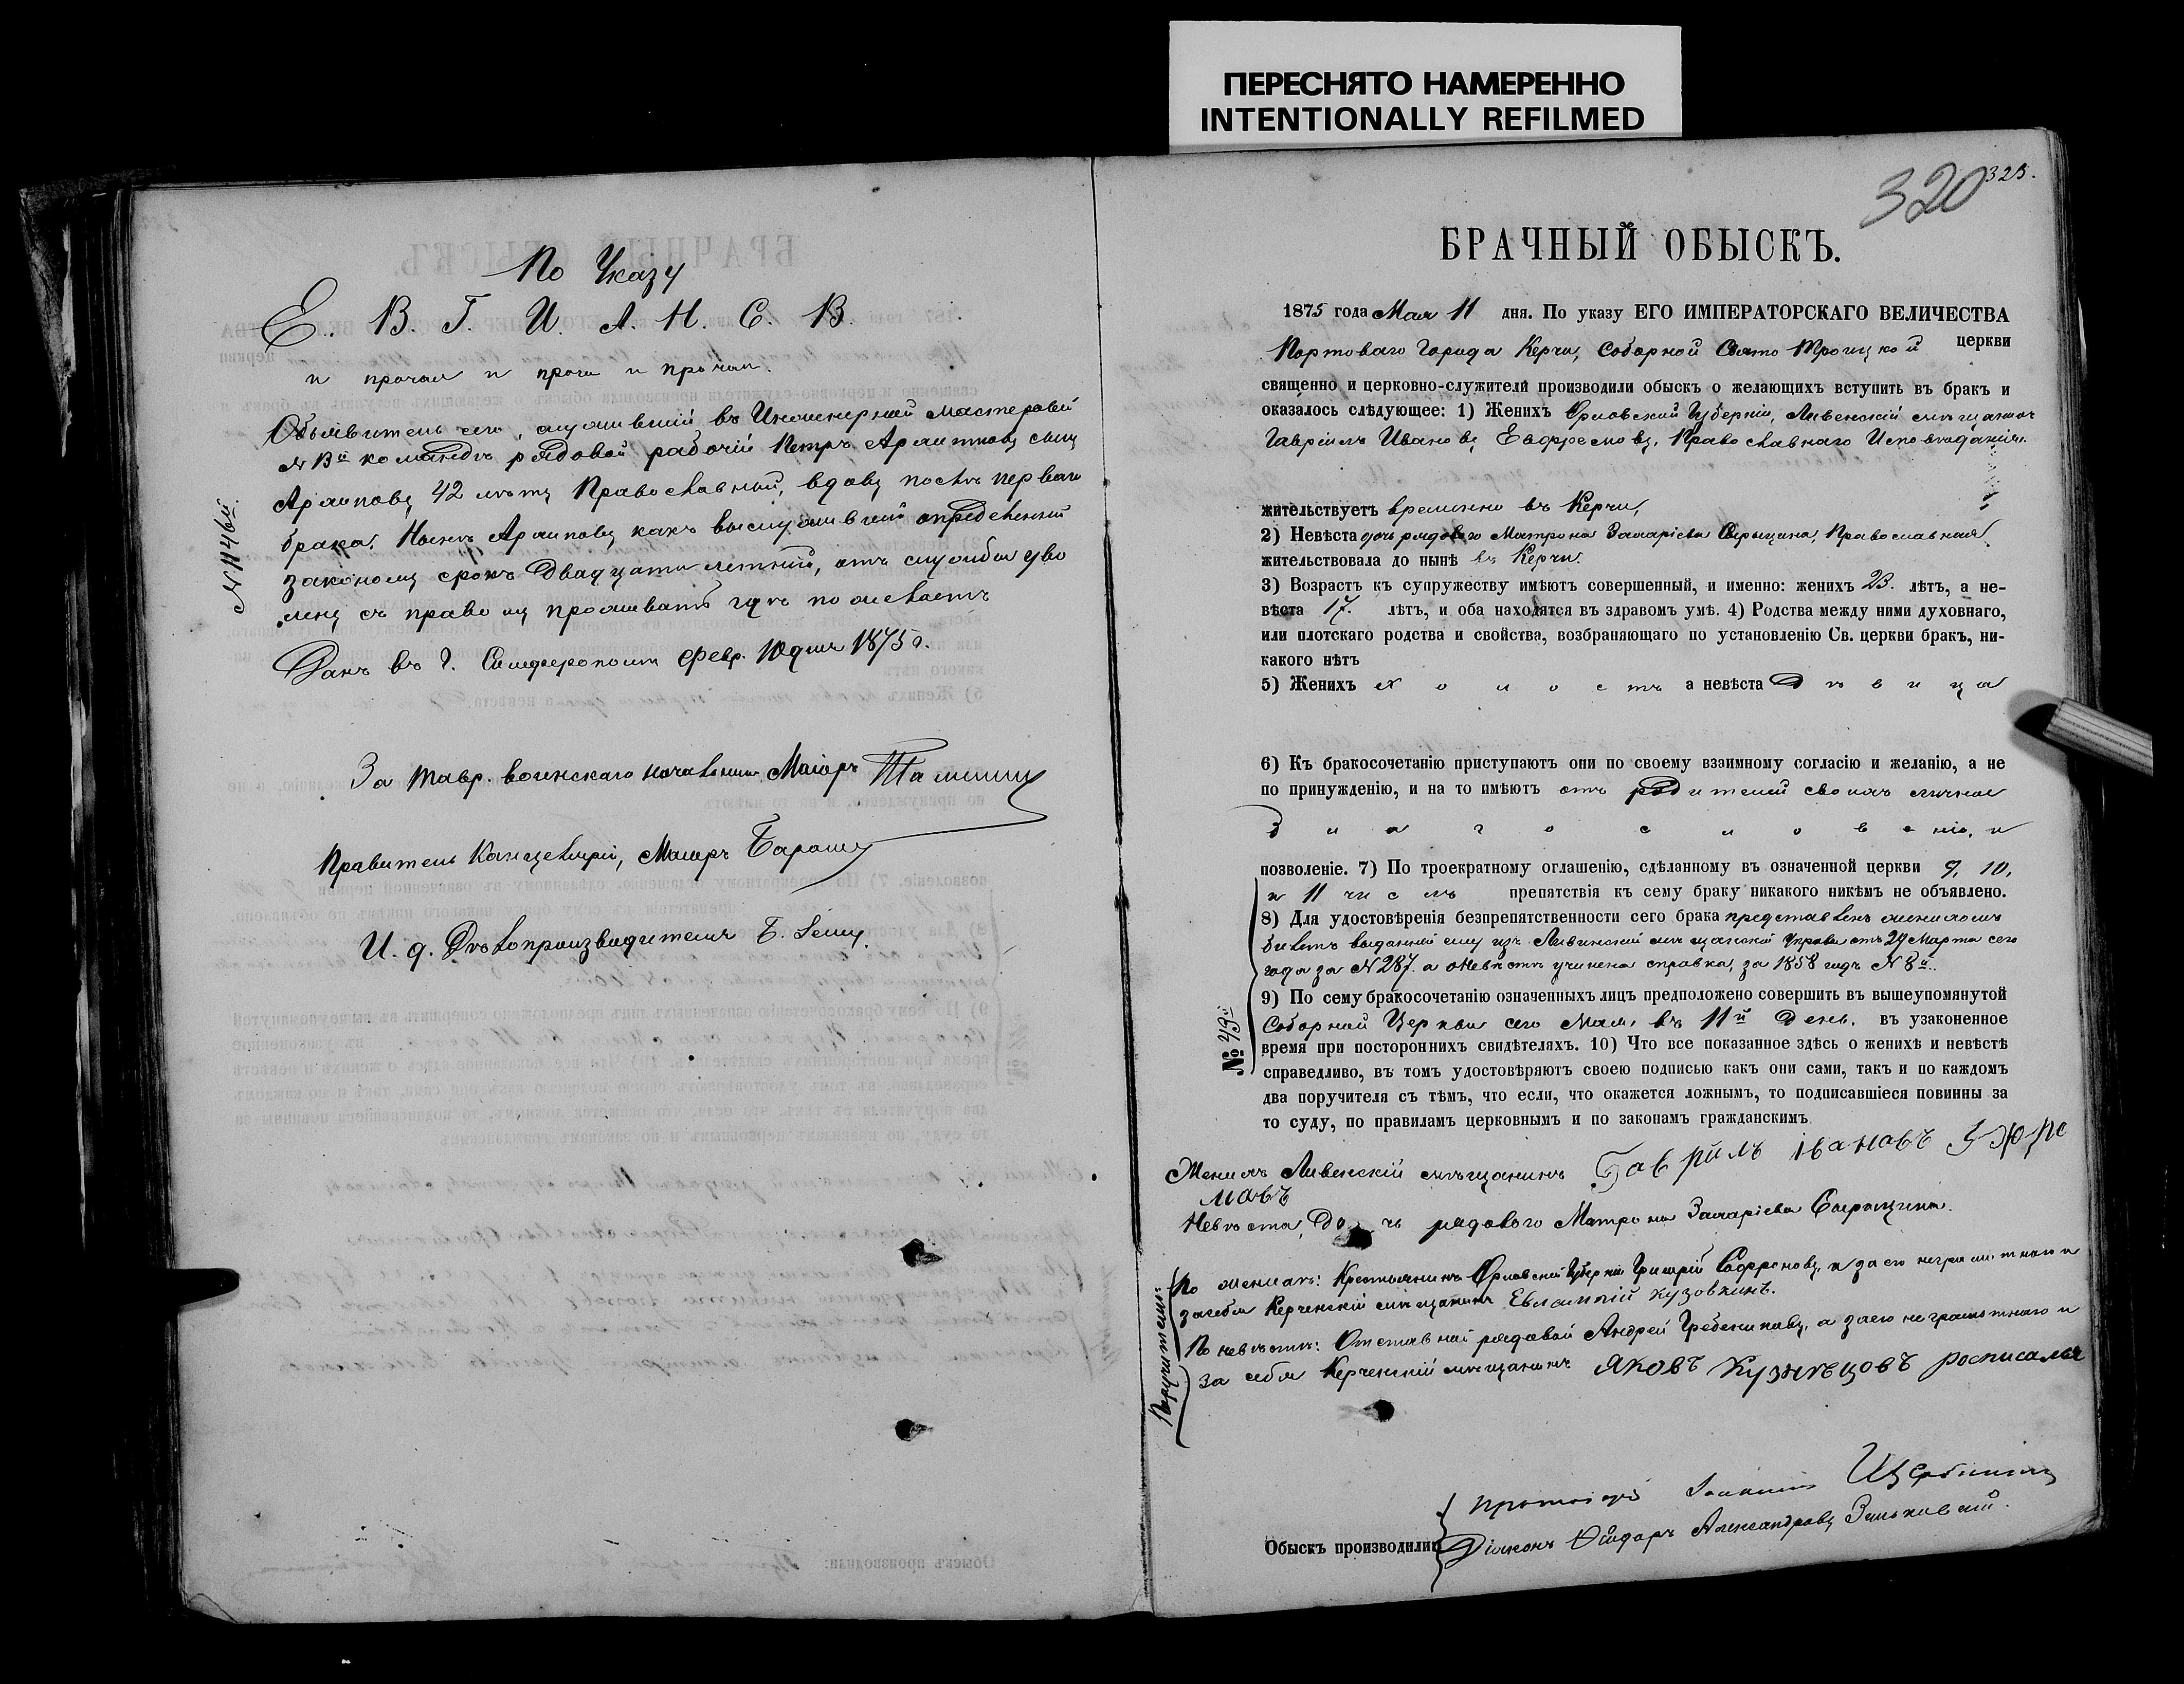 ПЕРЕСНЯТО НАМЕРЕННО
INTENTIONALLY REFILMED
По Указу
Е. В. Г. И. А. Н. С. В.
и прочая и проча и прочая.
Объявитель сего, служившій въ Инженерной мастеровой
командѣ рядовой рабочій Петръ Архиповъ сынъ
Архиповъ, 42 лѣтъ Православный, вдовъ послѣ перваго
брака. Нынѣ Архиповъ какъ выслужившій определенный
закономъ срокъ двадцати летній, отъ службы уво
ленъ съ правомъ проживать гдѣ пожелаетъ
Данъ въ г. Симферополѣ Февр. 10 дня 1875 г.
№ 1146й.
За Тавр. воинскаго начальника, Маіоръ
Правитель Канцеляріи, Маіоръ
И. д. Дѣлопроизводителя
320
325.
БРАЧНЫЙ ОБЫСКЪ.
1875 года Мая 11 дня. По указу ЕГО ИМПЕРАТОРСКАГО ВЕЛИЧЕСТВА
Портоваго Города Керчи, Соборной Свято Троицкой церкви
священно и церковно-служители производили обыскъ о желающихъ вступить въ бракъ и
оказалось слѣдующее: 1) Женихъ Орловской Губерніи, Ливенскій мѣщанинъ
Гавріилъ Ивановъ Ефремовъ, Православнаго Исповѣданія.
жительствуетъ временно въ Керчи,
2) Невѣста дочь рядоваго Матрона Захаріева Православная
жительствовала до нынѣ въ Керчи.
3) Возрастъ къ супружеству имѣютъ совершенный, и именно: женихъ 23. лѣтъ, а не-
вѣста 17. лѣтъ, и оба находятся въ здравомъ умѣ. 4) Родства между ними духовнаго,
или плотскаго родства и свойства, возбраняющаго по установленію Св. церкви бракъ, ни-
какого нѣтъ
5) Женихъ холостъ а невѣста Дѣвица
6) Къ бракосочетанію приступаютъ они по своему взаимному согласію и желанію, а не
по принужденію, и на то имѣютъ отъ родителей своихъ личное
благословеніе, и
позволеніе. 7) По троекратному оглашенію, сдѣланному въ означенной церкви 9, 10,
и 11 числъ препятствія къ сему браку никакого никѣмъ не объявлено.
8) Для удостовѣренія безпрепятственности сего брака представленъ женихомъ
билетъ выданный ему изъ Ливенской мѣщанской Управы отъ 29 Марта сего
года за № 287. а оневѣстѣ учинена справка, за 1858 годъ № 8й.
9) По сему бракосочетанію означенныхъ лицъ предположено совершить въ вышеупомянутой
Соборной Церкви сего Мая, въ 11й День. въ узаконенное
время при постороннихъ свидѣтеляхъ. 10) Что все показанное здѣсь о женихѣ и невѣстѣ
справедливо, въ томъ удостовѣряютъ своею подписью какъ они сами, такъ и по каждомъ
два поручителя съ тѣмъ, что если, что окажется ложнымъ, то подписавшіеся повинны за
то суду, по правиламъ церковнымъ и по законамъ гражданскимъ
Женихъ Ливенскій мѣщанинъ Гаврiилъ Iвановъ
мовъ
Невѣста, Дочь рядоваго Матрона Захаріева
Поручители:
По женихѣ: Крестьянинъ Орловской Губерніи Григорій Софроновъ, а за его неграмотнаго и
засебя Керченскій мѣщанинъ Евлампій Кузовкинъ.
По невѣстѣ: Отставной рядовой Андрей Гребенниковъ, а заего неграмотнаго и
за себя Керченскій мѣщанинъ Яковъ Кузнѣцовъ росписался
Обыскъ производили:
Протоіерей Іоаннъ
Діаконъ Ѳеодоръ Александровъ Зеньковскій.